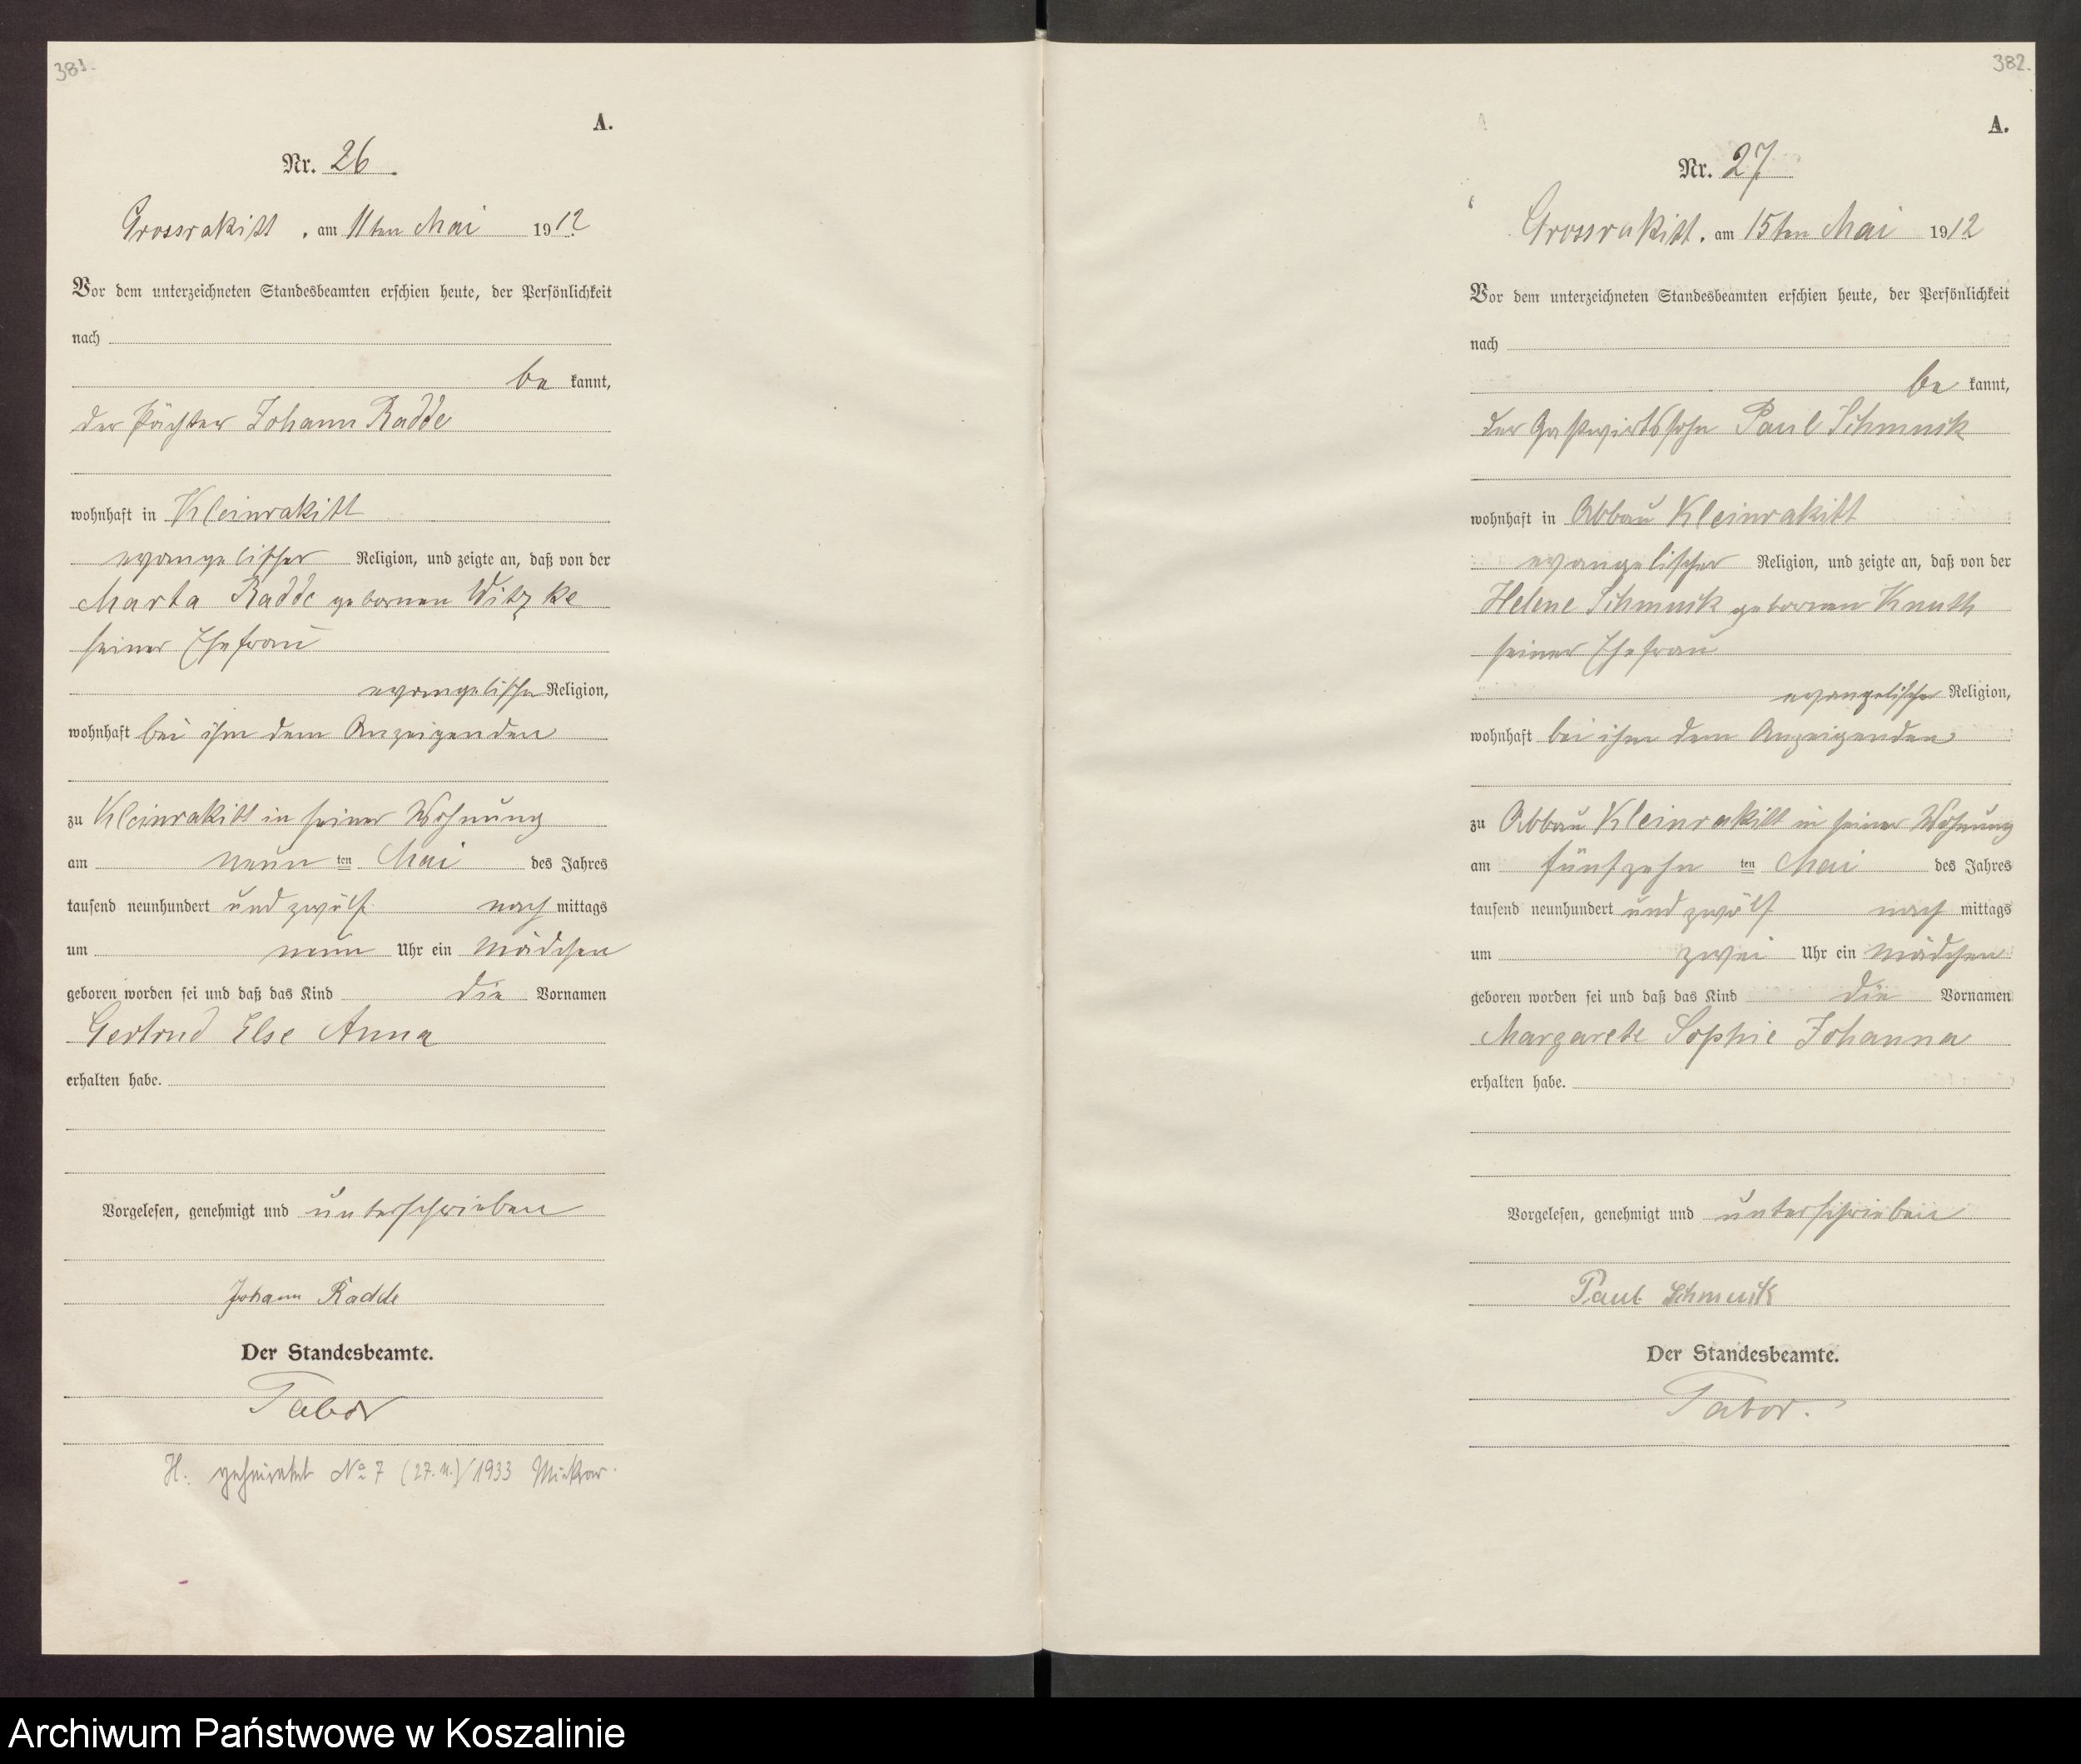 381.
A.
Nr. 26.
Grossrakitt, am 11ten Mai 1912
Vor dem unterzeichneten Standesbeamten erschien heute, der Persönlichkeit
nach
be kannt,
der Pächter Johann Radde
wohnhaft in Kleinrakitt
evangelischer Religion, und zeigte an, daß von der
Marta Radde geborenen Witzke
seiner Ehefrau
evangelischer Religion,
wohnhaft bei ihm dem Anzeigenden
zu Kleinrakitt in seiner Wohnung
am neun ten Mai des Jahres
tausend neunhundert und zwölf nach mittags
um neun Uhr ein Mädchen
geboren worden sei und daß das Kind die Vornamen
Gertrud Else Anna
erhalten habe.
Vorgelesen, genehmigt und unterschrieben
Johann Radde
Der Standesbeamte.
Tabor
H. geheiratet No 7 1933
382.
A.
Nr. 27
Grossrakitt, am 15ten Mai 1912
Vor dem unterzeichneten Standesbeamten erschien heute, der Persönlichkeit
nach
be kannt,
der Gastwirtssohn Paul Schmuik
wohnhaft in Abbau Kleinrakitt
evangelischer Religion, und zeigte an, daß von der
Helene Schmuik geborenen Knuth
seiner Ehefrau
evangelischer Religion,
wohnhaft bei ihm dem Anzeigenden
zu Abbau Kleinrakitt in seiner Wohnung
am fünfzehn ten Mai des Jahres
tausend neunhundert und zwölf nach mittags
um zwei Uhr ein Mädchen
geboren worden sei und daß das Kind die Vornamen
Margarete Sophie Johanna
erhalten habe.
Vorgelesen, genehmigt und unterschrieben
Paul Schmuik
Der Standesbeamte.
Tabor.
Archiwum Państwowe w Koszalinie